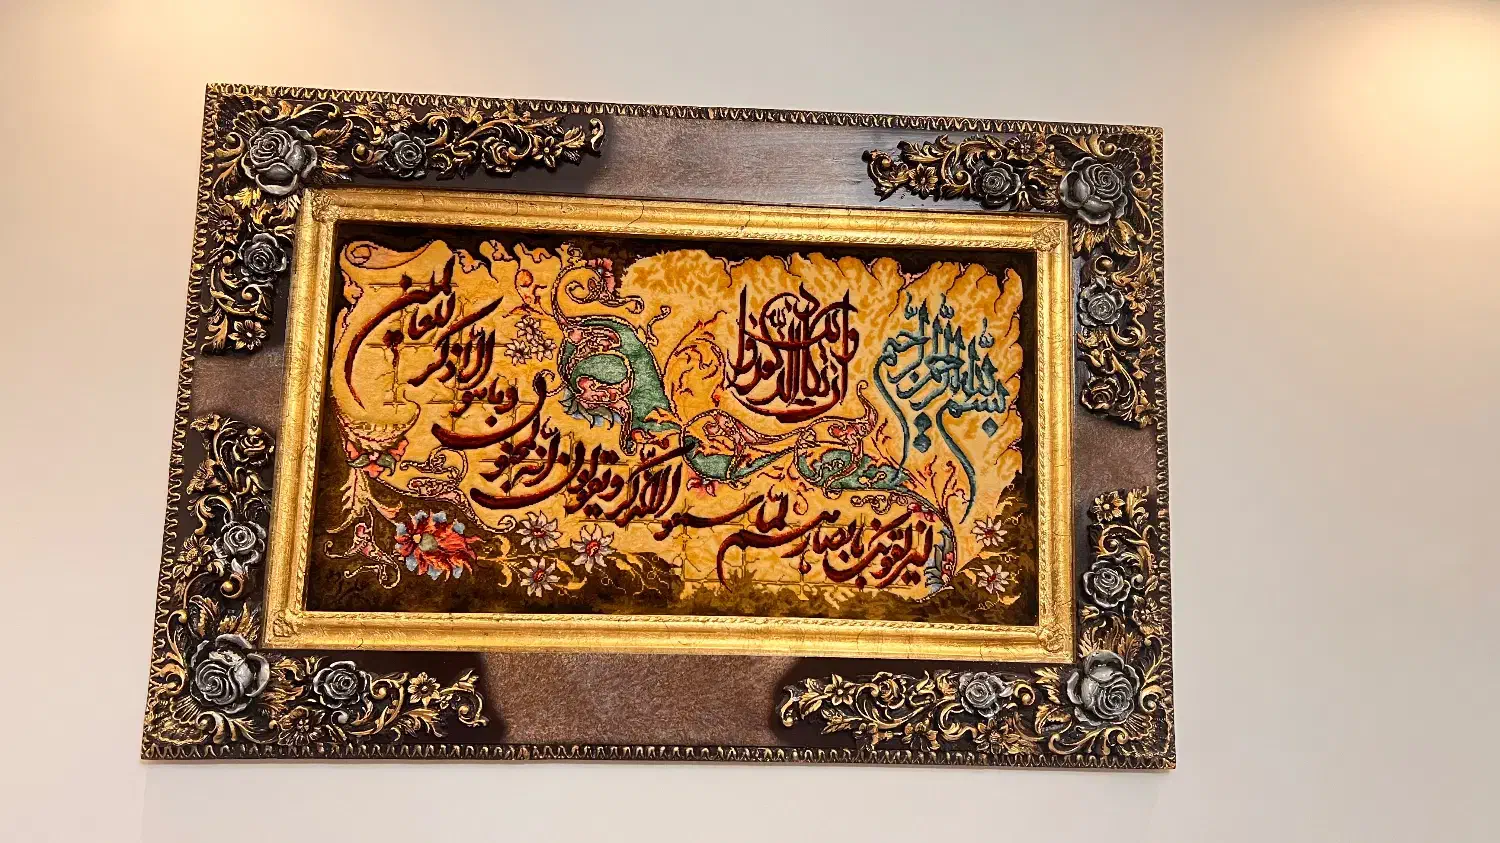 بسم الله الرحمن الرحیم
وان یکاد الذین کفروا
لیزلقونک بابصارهم لما سمعوا
الذکر و یقولون انه لمجنون
و ما هو الا ذکر للعالمین